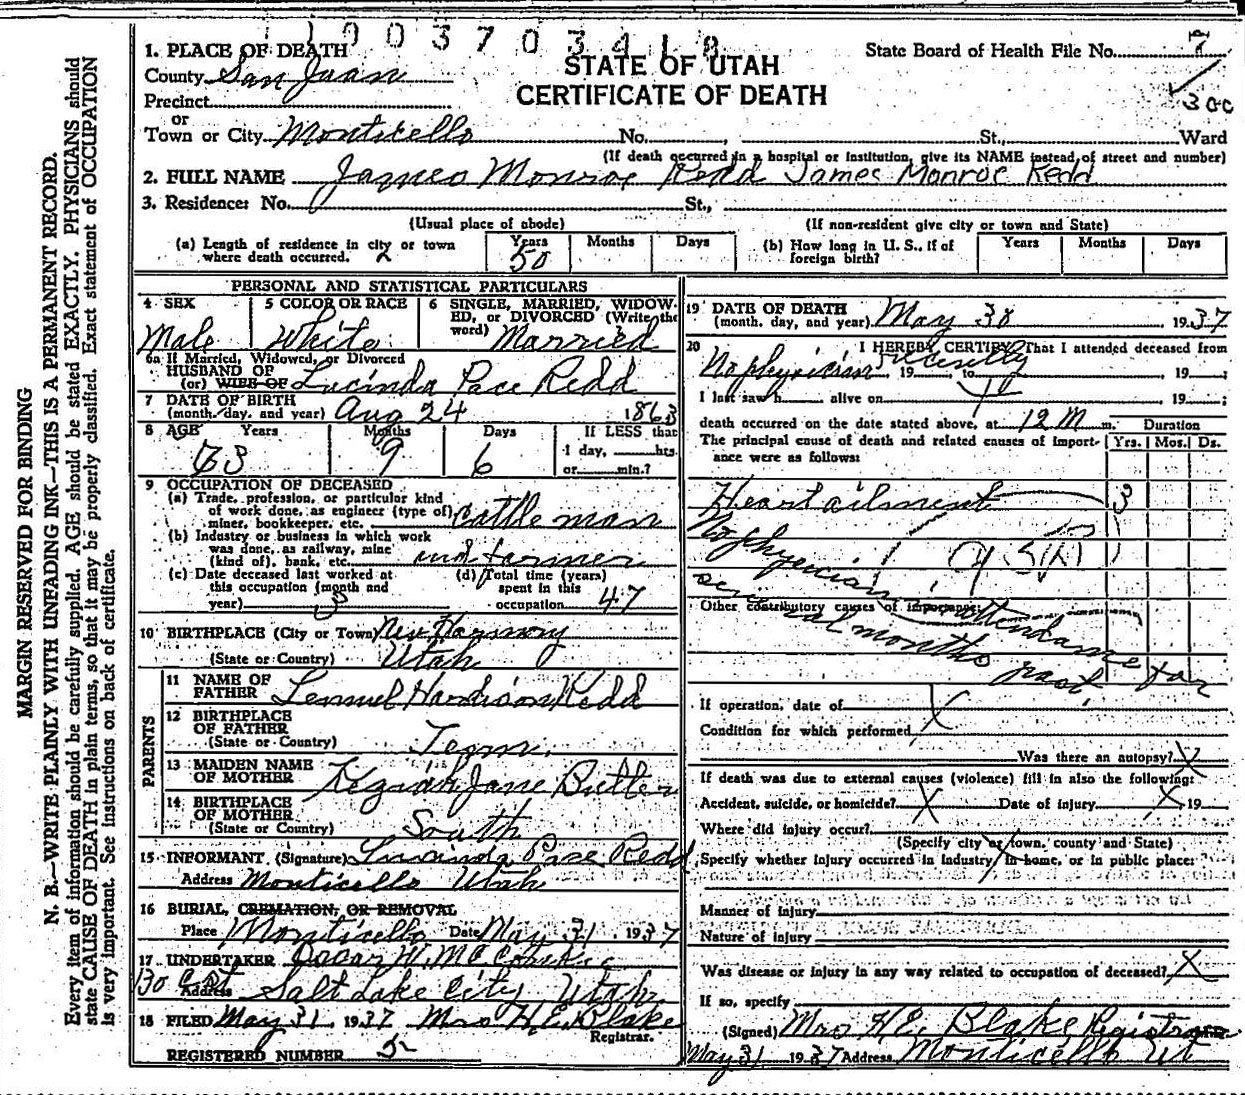 1 9 0 3 7 0 3 4 1 8
1. PLACE OF DEATH
County San Juan
Precinct
or
Town or City Monticello No. , St., Ward
STATE OF UTAH
CERTIFICATE OF DEATH
State Board of Health File No. 7
300
(If death occurred in a hospital or institution, give its NAME instead of street and number)
2. FULL NAME James Monroe Redd James Monroe Redd
3. Residence: No. St.,
(Usual place of abode) (If non-resident give city or town and State)
(a) Length of residence in city or town where death occurred. Years 50 Months Days
(b) How long in U. S., if of foreign birth? Years Months Days
PERSONAL AND STATISTICAL PARTICULARS
4 SEX Male
5 COLOR OR RACE White
6 SINGLE, MARRIED, WIDOWED, or DIVORCED (Write the word) Married
6a If Married, Widowed, or Divorced
HUSBAND OF
(or) WIFE OF Lucinda Pace Redd
7 DATE OF BIRTH
(month, day, and year) Aug 24 1863
8 AGE Years 73 Months 9 Days 6 If LESS than
1 day, hrs.
or min.?
9 OCCUPATION OF DECEASED
(a) Trade, profession, or particular kind
of work done, as engineer (type of),
miner, bookkeeper, etc. cattle man
(b) Industry or business in which work
was done, as railway, mine
(kind of), bank, etc. and farmer
(c) Date deceased last worked at
this occupation (month and
year) 3
(d) Total time (years)
spent in this
occupation 47
10 BIRTHPLACE (City or Town) New Harmony
(State or Country) Utah
PARENTS
11 NAME OF
FATHER Lemuel Hardison Redd
12 BIRTHPLACE
OF FATHER
(State or Country) Tenn.
13 MAIDEN NAME
OF MOTHER Keziah Jane Butler
14 BIRTHPLACE
OF MOTHER
(State or Country) South
15 INFORMANT (Signature) Lucinda Pace Redd
Address Monticello Utah
16 BURIAL, CREMATION, OR REMOVAL
Place Monticello Date May 31, 1937
17 UNDERTAKER Oscar W. McConkie
Address Salt Lake City Utah
18 FILED May 31 1937 Mrs H.E. Blake
Registrar.
REGISTERED NUMBER 5
19 DATE OF DEATH
(month, day, and year) May 30, 1937
20 I HEREBY CERTIFY That I attended deceased from
No physician recently 19 to , 19 ;
I last saw h alive on , 19 ;
death occurred on the date stated above, at 12 M m.
The principal cause of death and related causes of importance were as follows:
Duration
Yrs. Mos. Ds.
Heart ailment 3
No physician in attendance for
several months past.
Other contributory causes of importance:
If operation, date of X
Condition for which performed
Was there an autopsy? X
If death was due to external causes (violence) fill in also the following:
Accident, suicide, or homicide? X Date of injury X, 19
Where did injury occur?
(Specify city or town, county and State)
Specify whether injury occurred in industry, in home, or in public place:
Manner of injury
Nature of injury
Was disease or injury in any way related to occupation of deceased? X
If so, specify
(Signed) Mrs H.E. Blake Registrar
May 31 1937 Address Monticello Ut
MARGIN RESERVED FOR BINDING
N. B.—WRITE PLAINLY WITH UNFADING INK—THIS IS A PERMANENT RECORD.
Every item of information should be carefully supplied. AGE should be stated EXACTLY. PHYSICIANS should
state CAUSE OF DEATH in plain terms, so that it may be properly classified. Exact statement of OCCUPATION
is very important. See instructions on back of certificate.